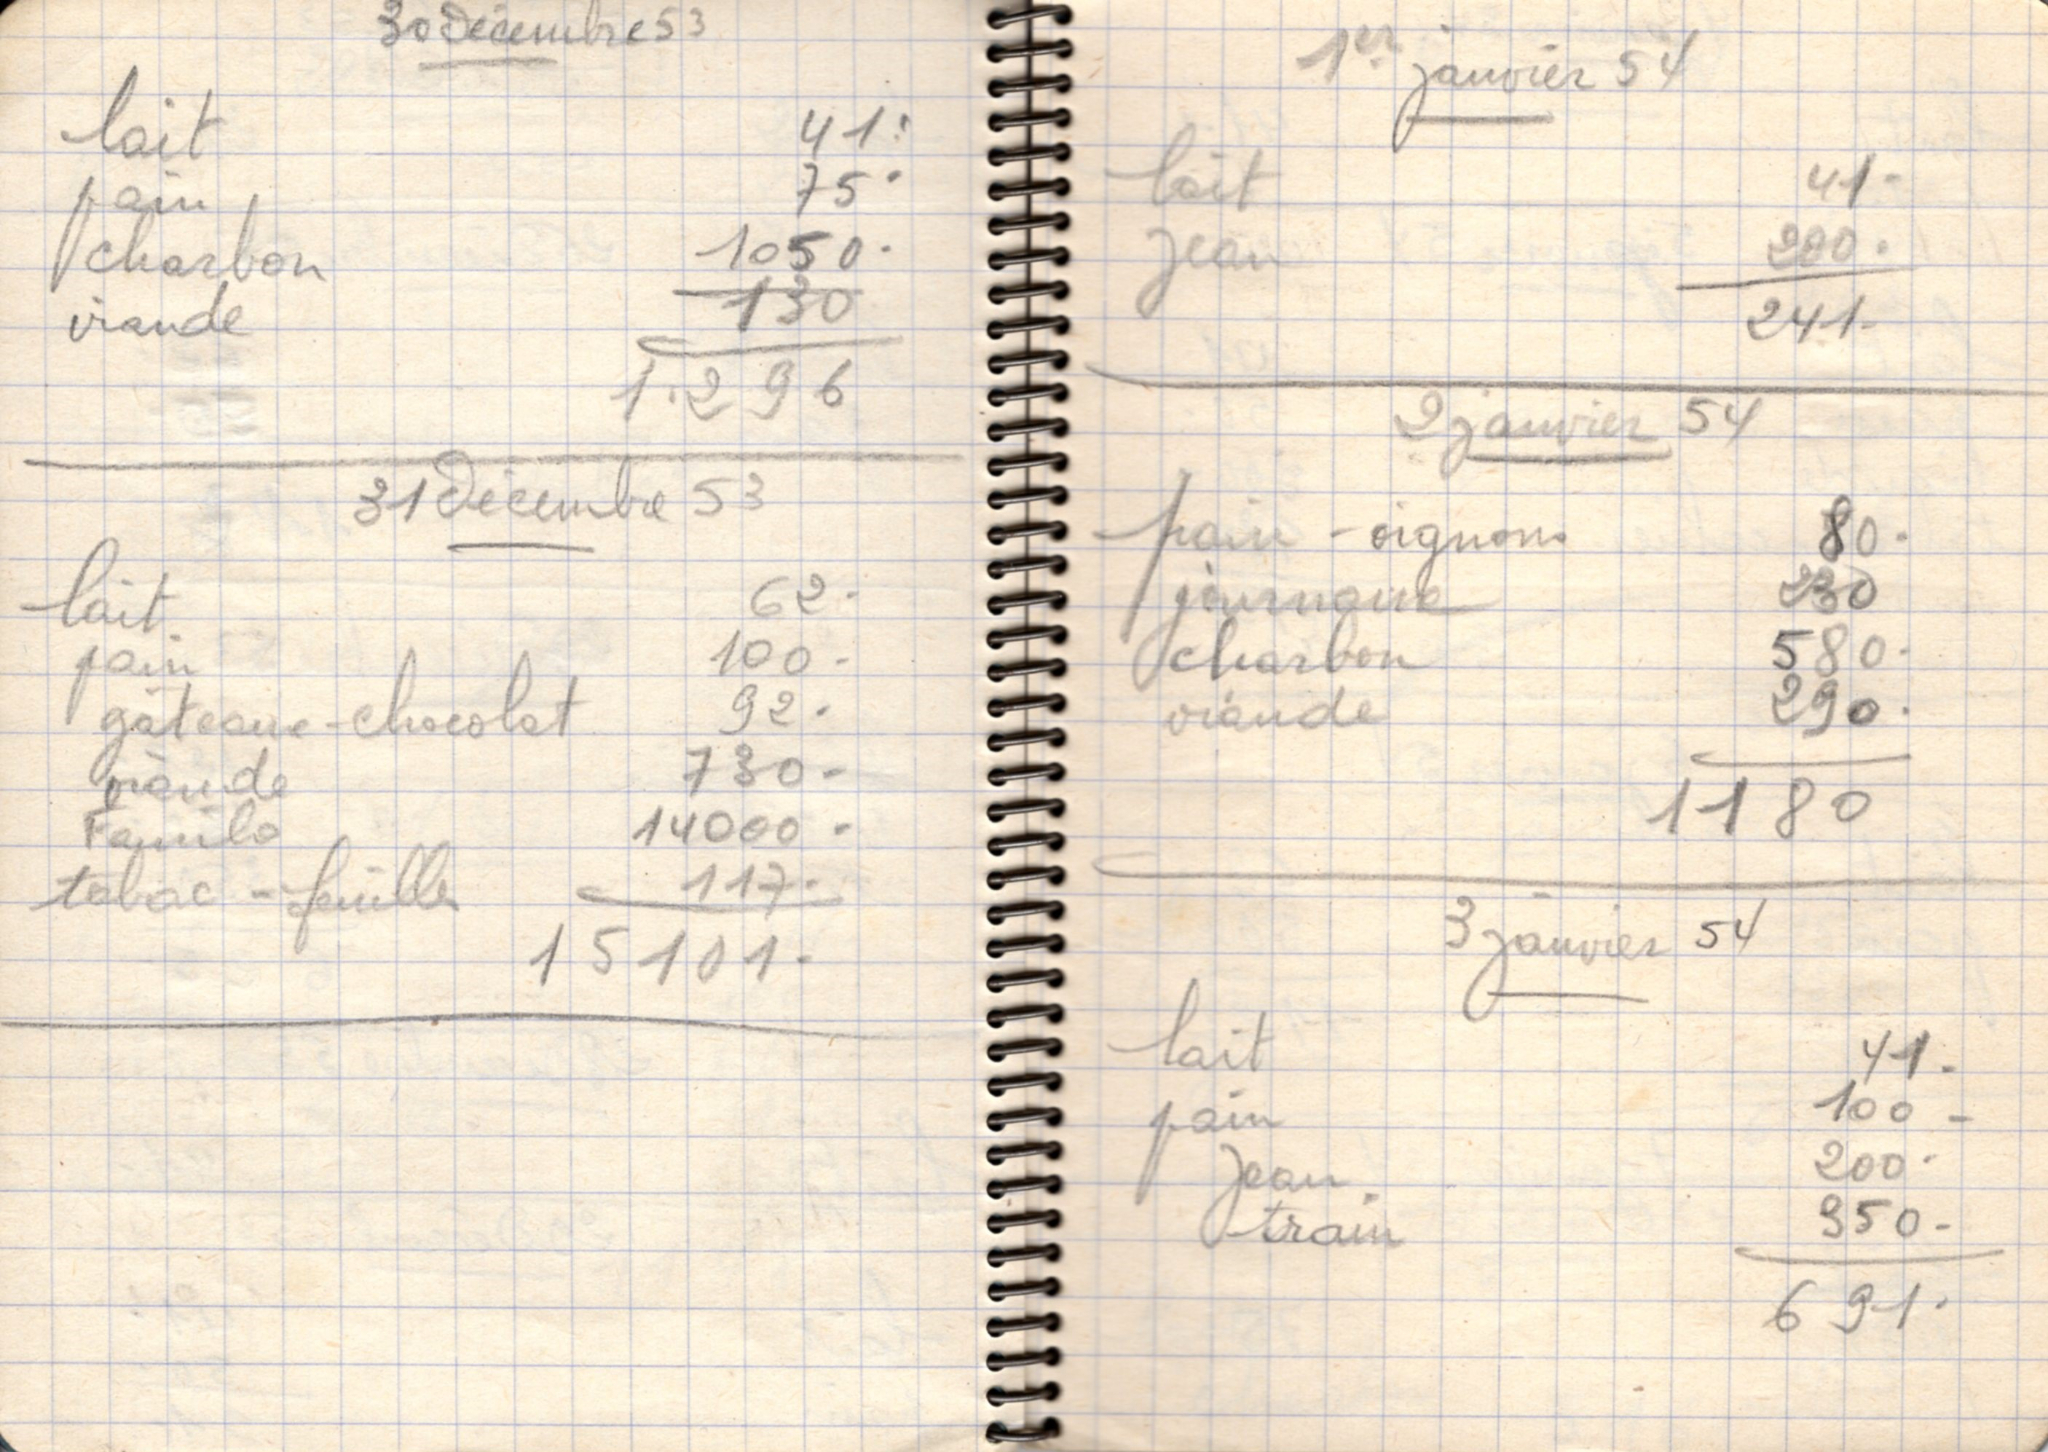 30 Décembre 53
lait 41.
pain 75.
charbon 1050.
viande 130
1.296
31 Décembre 53
lait 62.
pain 100.
gâteaux-chocolat 92.
viande 730.
Familo 14000.
tabac - feuilles 117.
15101.
1er janvier 54
lait 41.
Jean 200.
241.
2 janvier 54
pain - oignons 80.
journaux 230
charbon 580.
viande 290.
1180
3 janvier 54
lait 41.
pain 100 -
Jean 200.
train 350.
691.